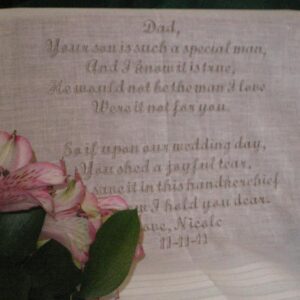 Dad,
Your son is such a special man,
And I know it is true,
He would not be the man I love
Were it not for you.
So if upon our wedding day,
You shed a joyful tear,
save it in this handkerchief
I hold you dear.
Love, Nicole
11-11-11